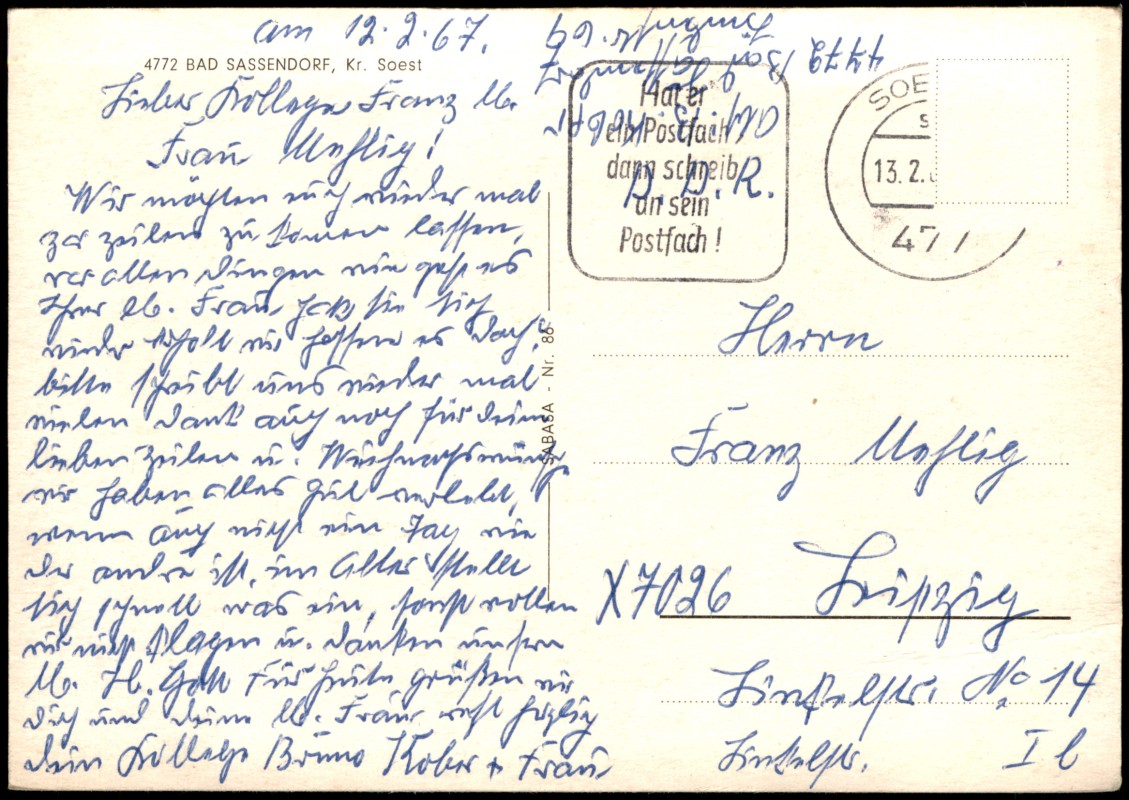 am 12.2.67.
4772 BAD SASSENDORF, Kr. Soest
Lieber Kollege Franz lb.
Frau Uehlig!
Wir möchten euch wieder mal
zeilen zu komen lassen,
vor allen dingen wie geht es
Ihrer lb. Frau, hat sie sich
wieder erholt wir hoffen es doch,
bitte schreibt uns wieder mal
vielen Dank auch noch für deine
lieben Zeilen u. Weihnachtswünsche
wir haben alles gut verlebt,
wenn auch nicht ein Tag wie
der andre ist, im Alter stellt
sich schnell was ein, sonst wollen
wir nicht klagen u. danken unsern
lb. Hb. Gott für heute grüßen wir
dich und deine lb. Frau recht herzlich
dein Kollege Bruno Kober + Frau
SABASA - Nr. 86
4772 Bad Sassendorf
Abs.
B. D. R.
Hat er
ein Postfach
dann schreib
an sein
Postfach !
SOE
13. 2.
477
Herrn
Franz Uehlig
X7026 Leipzig
Linkelstr. No 14
Linkelstr. I b